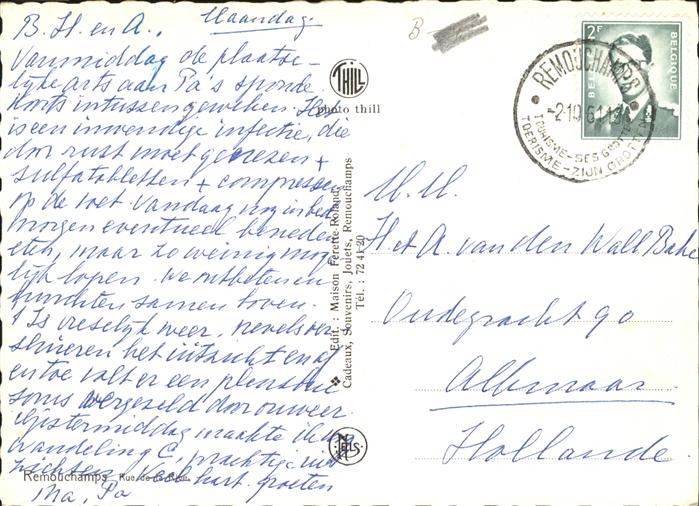 B. H. en A., Maandag.
Vanmiddag de plaatse-
lijke arts aan Pa's sponde.
Koorts intussen geweken. Het
is een inwendige infectie, die
door rust moet genezen +
sulfatabletten + compressen
op de voet. Vandaag nog in bed
morgen eventueel beneden
eten, maar zo weinig moge-
lijk lopen. We ontbeten en
lunchten samen boven.
't Is vreselijk weer, nevels ver-
sluieren het uitzicht en af
en toe valt er een plensbui
soms vergezeld door onweer.
Gistermiddag maakte ik nog
wandeling C, prachtige uit-
zichten. Veel hart. groeten
Ma, Pa
Remouchamps Rue de
B
THILL
photo thill
Edit. : Maison Ferette-Roland
Cadeaux, Souvenirs, Jouets, Remouchamps
Tél. : 72 41 20
NELS
2F
BELGIQUE
BEL
REMOUCHAMPS
-2-10 61
TOURISME - SES GROTTES
TOERISME - ZIJN GROTTEN
M. M.
H et A. van den Wall Bake
Oudegracht 90
Alkmaar
Hollande.